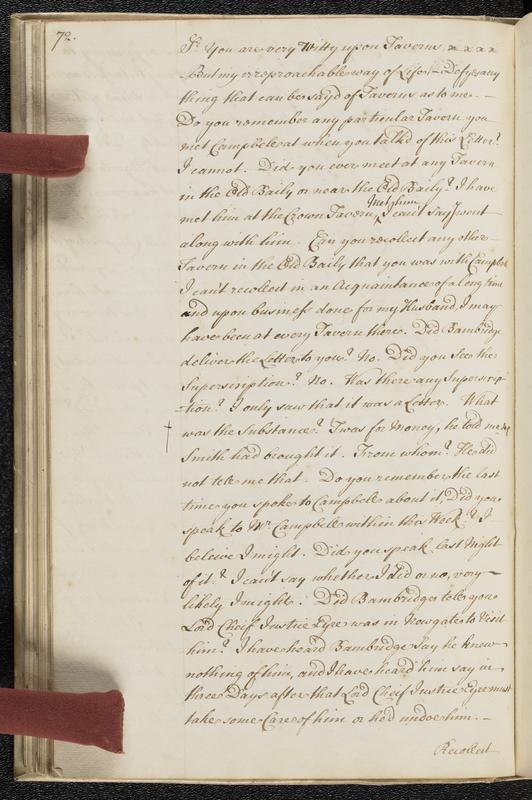 72.
Sr. You are very Witty upon Taverns, x x x x
But my irreproachable way of Life Defyes any
thing that can be sayd of Taverns as to me. —
Do you remember any particular Tavern you
met Campbele at when you talkd of this Letter?
I cannot. Did you ever meet at any Tavern
in the Old Baily or near the Old Baily? I have
met him at the Crown Tavern, ^ I can't say I went
Met him
along with him. Can you recollect any other
Tavern in the Old Baily that you was with Campbele
I can't recollect in an Acquaintance of a long time
and upon business done for my Husband, I may
have been at every Tavern there. Did Bambridge
deliver the Letter to you? No. Did you See the
Superscription? No. Was there any Superscrip-
-tion? I only saw that it was a Letter. What
† was the Substance? Twas for Money, he told me
Smith had brought it. From whom? He did
not tele me that. Do you remember the last
time you spoke to Campbele about it, Did you
speak to Mr. Campbele within this Week? I
beleive I might. Did you speak last Night
of it? I can't say whether I did or no, very —
likely I might. Did Bambridge tele you
Lord Cheif Justice Eyre was in Newgate to Visit
him? I have heard Bambridge say he knew
nothing of him, and I have heard him say in
three Days after that Lord Cheif Justice Eyre must
take some Care of him or he'd undoe him. —
Recollect